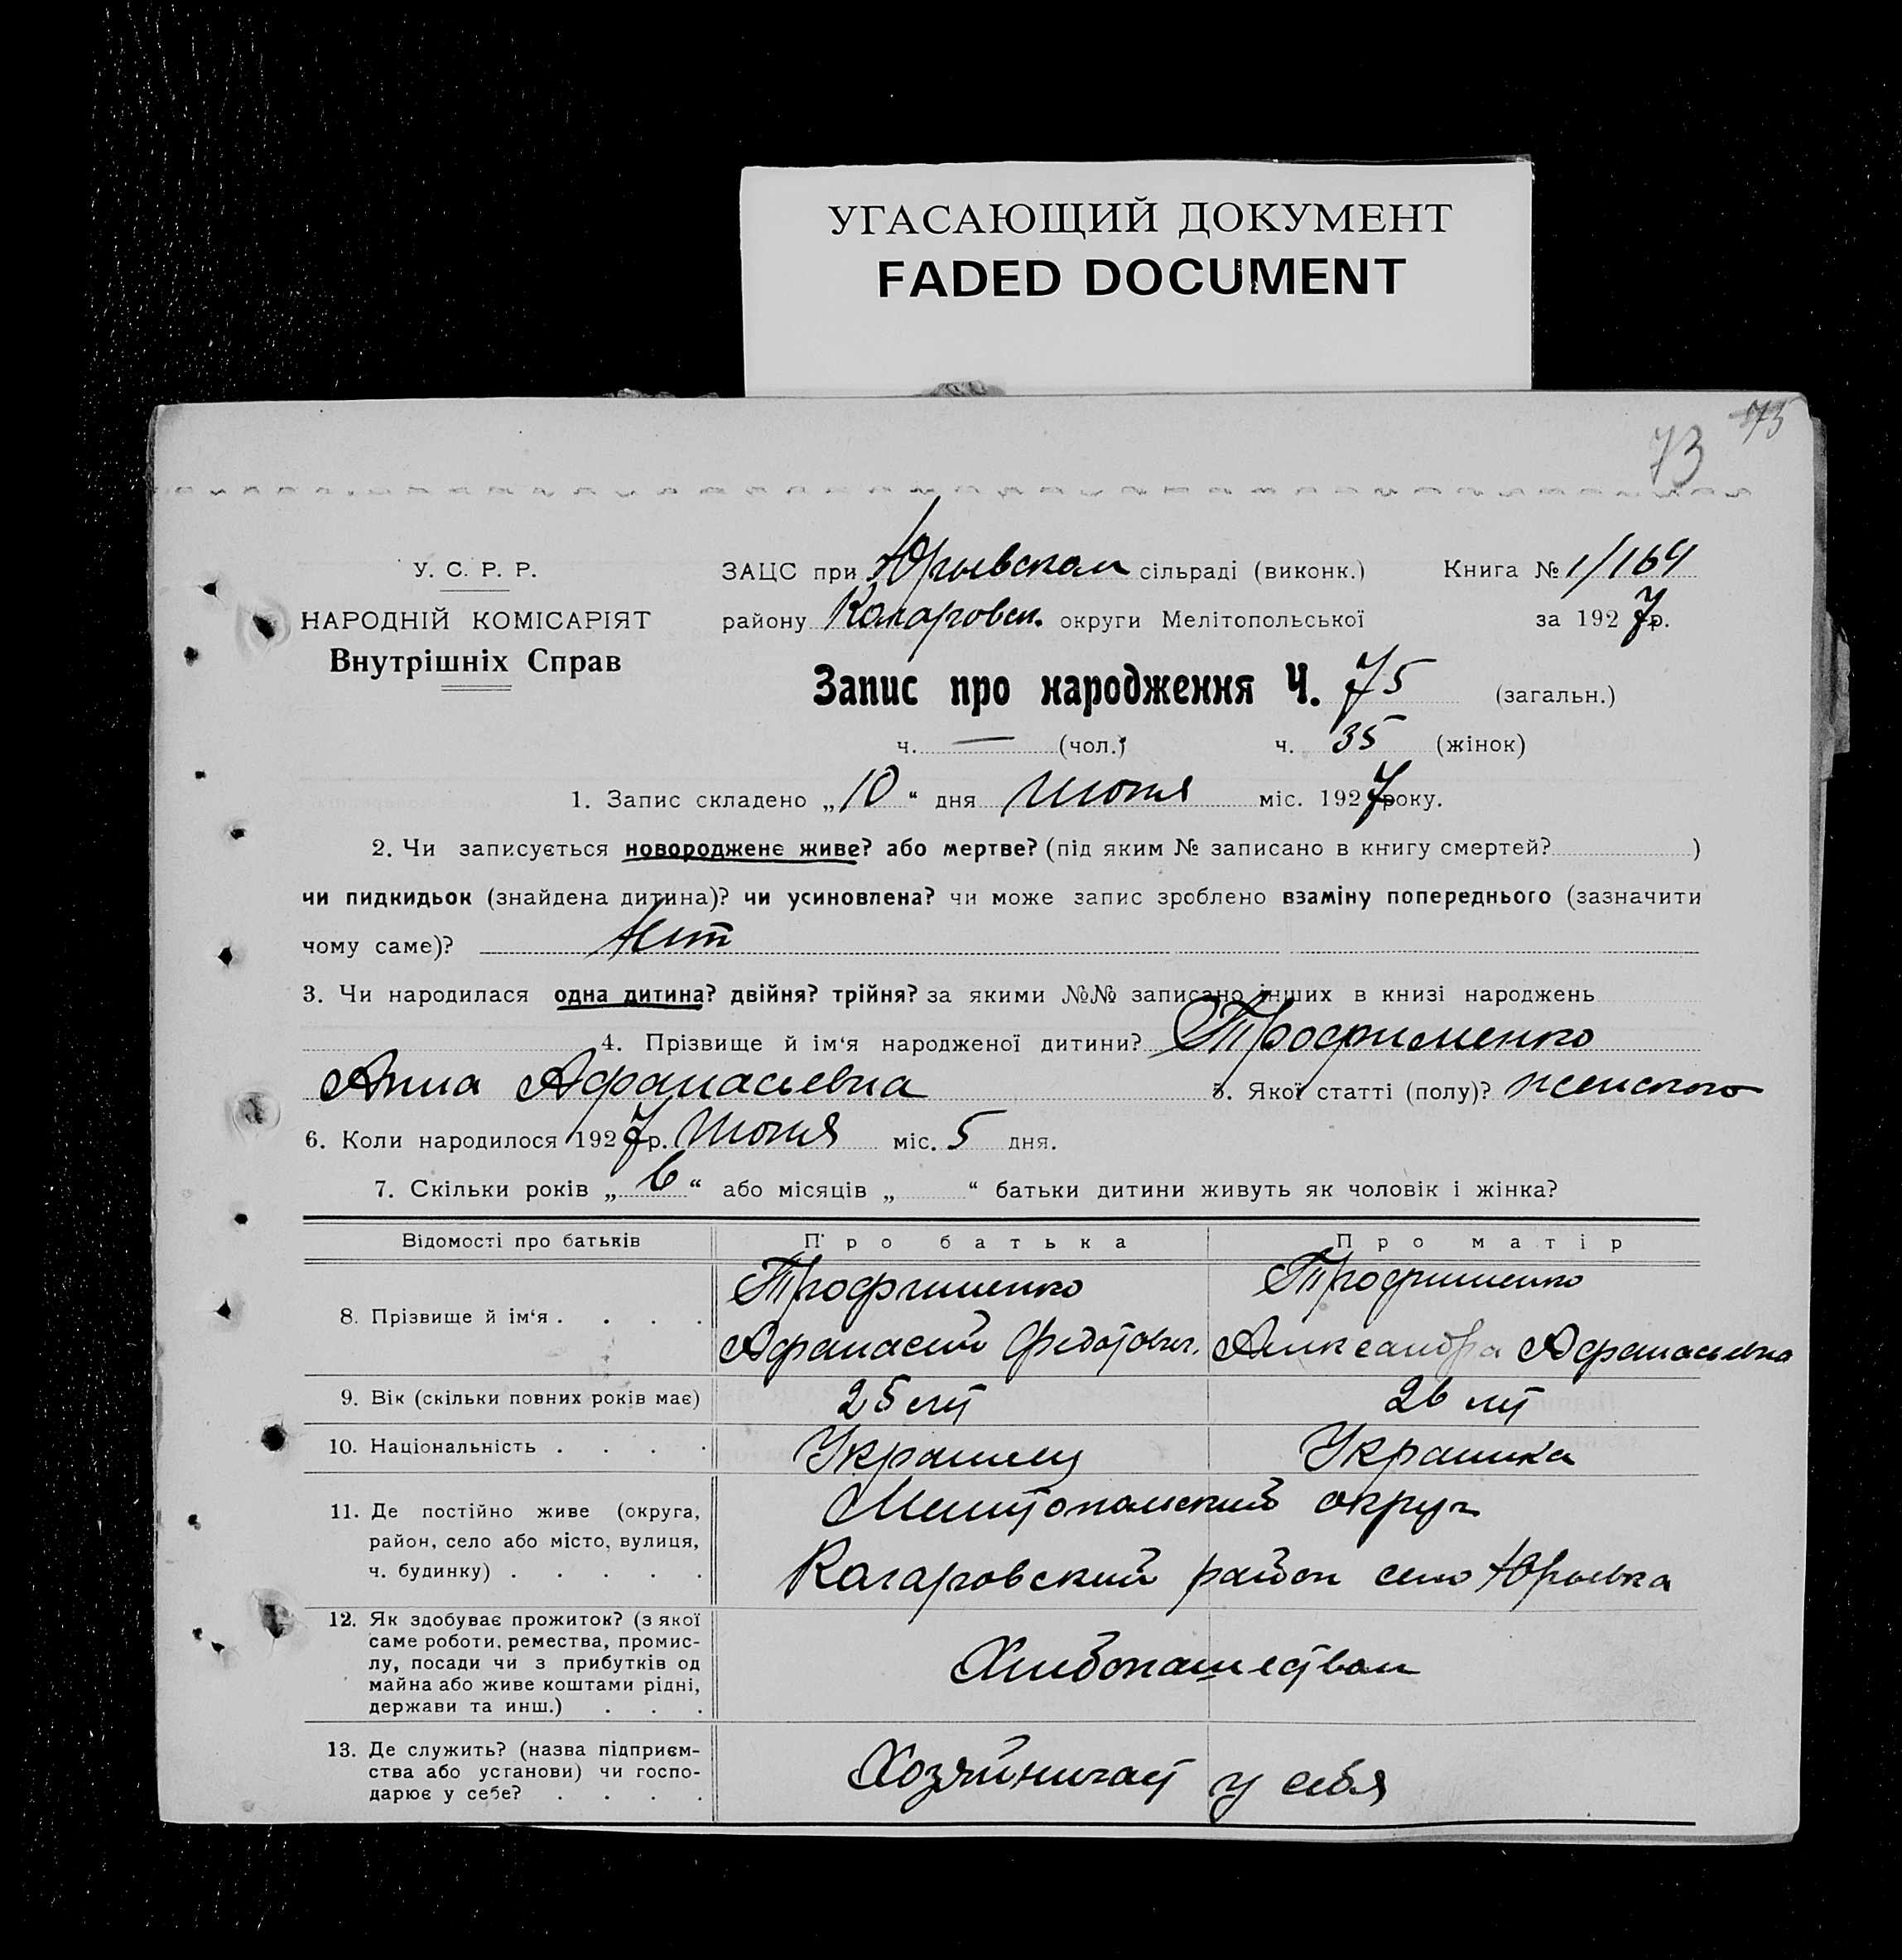 УГАСАЮЩИЙ ДОКУМЕНТ
FADED DOCUMENT
75
73
У. С. Р. Р.
НАРОДНІЙ КОМІСАРІЯТ
Внутрішніх Справ
ЗАЦС при Юрьевском сільраді (виконк.) Книга № 1/164
району Коларовск. округи Мелітопольської за 1927 р.
Запис про народження Ч. 75 (загальн.)
ч. — (чол.) ч. 35 (жінок)
1. Запис складено „10“ дня Июня міс. 1927 року.
2. Чи записується новороджене живе? або мертве? (під яким № записано в книгу смертей? )
чи пидкидьок (знайдена дитина)? чи усиновлена? чи може запис зроблено взаміну попереднього (зазначити
чому саме)? Нет
3. Чи народилася одна дитина? двійня? трійня? за якими №№ записано інших в книзі народжень
4. Прізвище й ім‘я народженої дитини? Трофименко
Анна Афанасьевна 5. Якої статті (полу)? женского
6. Коли народилося 1927 р. Июня міс. 5 дня.
7. Скільки років „6“ або місяців „ “ батьки дитини живуть як чоловік і жінка?
Відомості про батьків Про батька Про матір
8. Прізвище й ім‘я . . . . Трофименко Трофименко
Афанасий Федотович. Александра Афанасьевна
9. Вік (скільки повних років має) 25 лет 26 лет
10. Національність . . . . Украинец Украинка
11. Де постійно живе (округа, район, село або місто, вулиця, ч. будинку) . . . . . Мелитопольский округ
Коларовский район село Юрьевка
12. Як здобуває прожиток? (з якої
саме роботи, ремества, промис-
лу, посади чи з прибутків од
майна або живе коштами рідні,
держави та инш.) . . .
Хлебопашеством
13. Де служить? (назва підприєм-
ства або установи) чи госпо-
дарює у себе? . . . .
Хозяйничает у себя